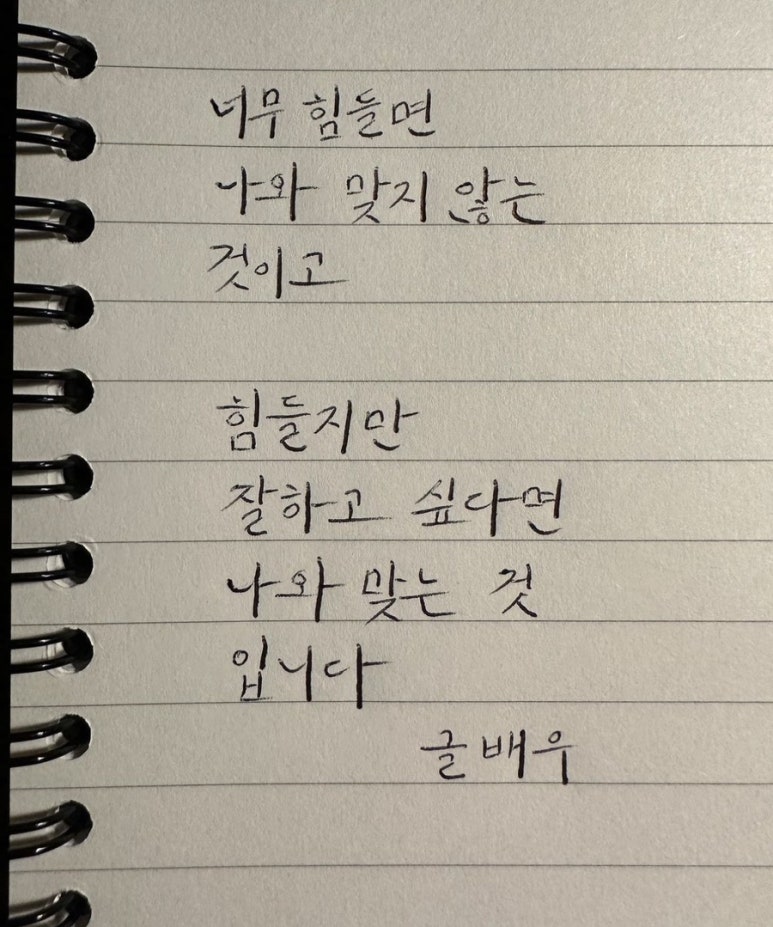 너무 힘들면
나와 맞지 않는
것이고
힘들지만
잘하고 싶다면
나와 맞는 것
입니다
글배우